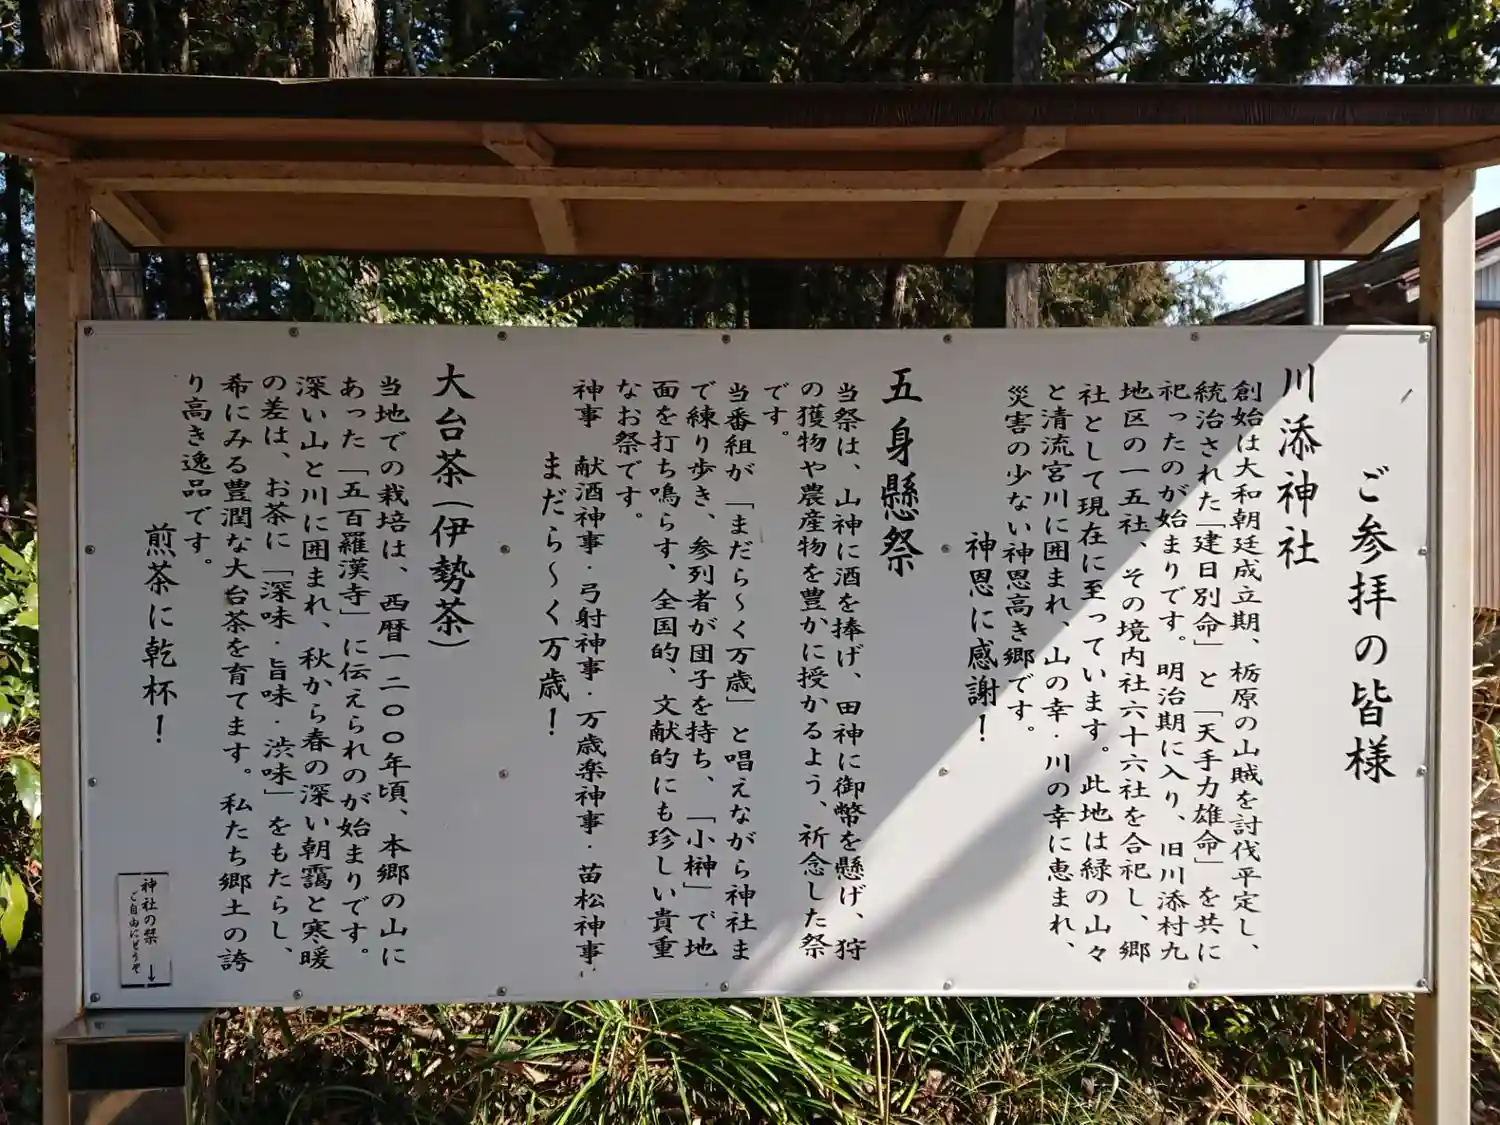 ご参拝の皆様
川添神社
創始は大和朝廷成立期、栃原の山賊を討伐平定し、
統治された「建日別命」と「天手力雄命」を共に
祀ったのが始まりです。明治期に入り、旧川添村九
地区の一五社、その境内社六十六社を合祀し、郷
社として現在に至っています。此地は緑の山々
と清流宮川に囲まれ、山の幸・川の幸に恵まれ、
災害の少ない神恩高き郷です。
神恩に感謝！
五身懸祭
当祭は、山神に酒を捧げ、田神に御幣を懸げ、狩
の獲物や農産物を豊かに授かるよう、祈念した祭
です。
当番組が「まだら～く万歳」と唱えながら神社ま
で練り歩き、参列者が団子を持ち、「小榊」で地
面を打ち鳴らす、全国的、文献的にも珍しい貴重
なお祭です。
神事 献酒神事・弓射神事・万歳楽神事・苗松神事
まだら～く万歳！
大台茶（伊勢茶）
当地での栽培は、西暦一二〇〇年頃、本郷の山に
あった「五百羅漢寺」に伝えられのが始まりです。
深い山と川に囲まれ、秋から春の深い朝靄と寒暖
の差は、お茶に「深味・旨味・渋味」をもたらし、
希にみる豊潤な大台茶を育てます。私たち郷土の誇
り高き逸品です。
煎茶に乾杯！
神社の栞
ご自由にどうぞ
↓